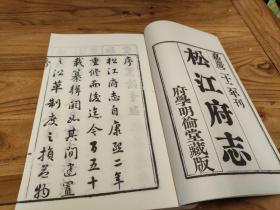 嘉慶二十二年刊
松江府志
府學明倫堂藏版
序
松江府志自康熙二年
重修而後迄今百五十
載纂輯闕如其間建置
之沿革制度之損益物